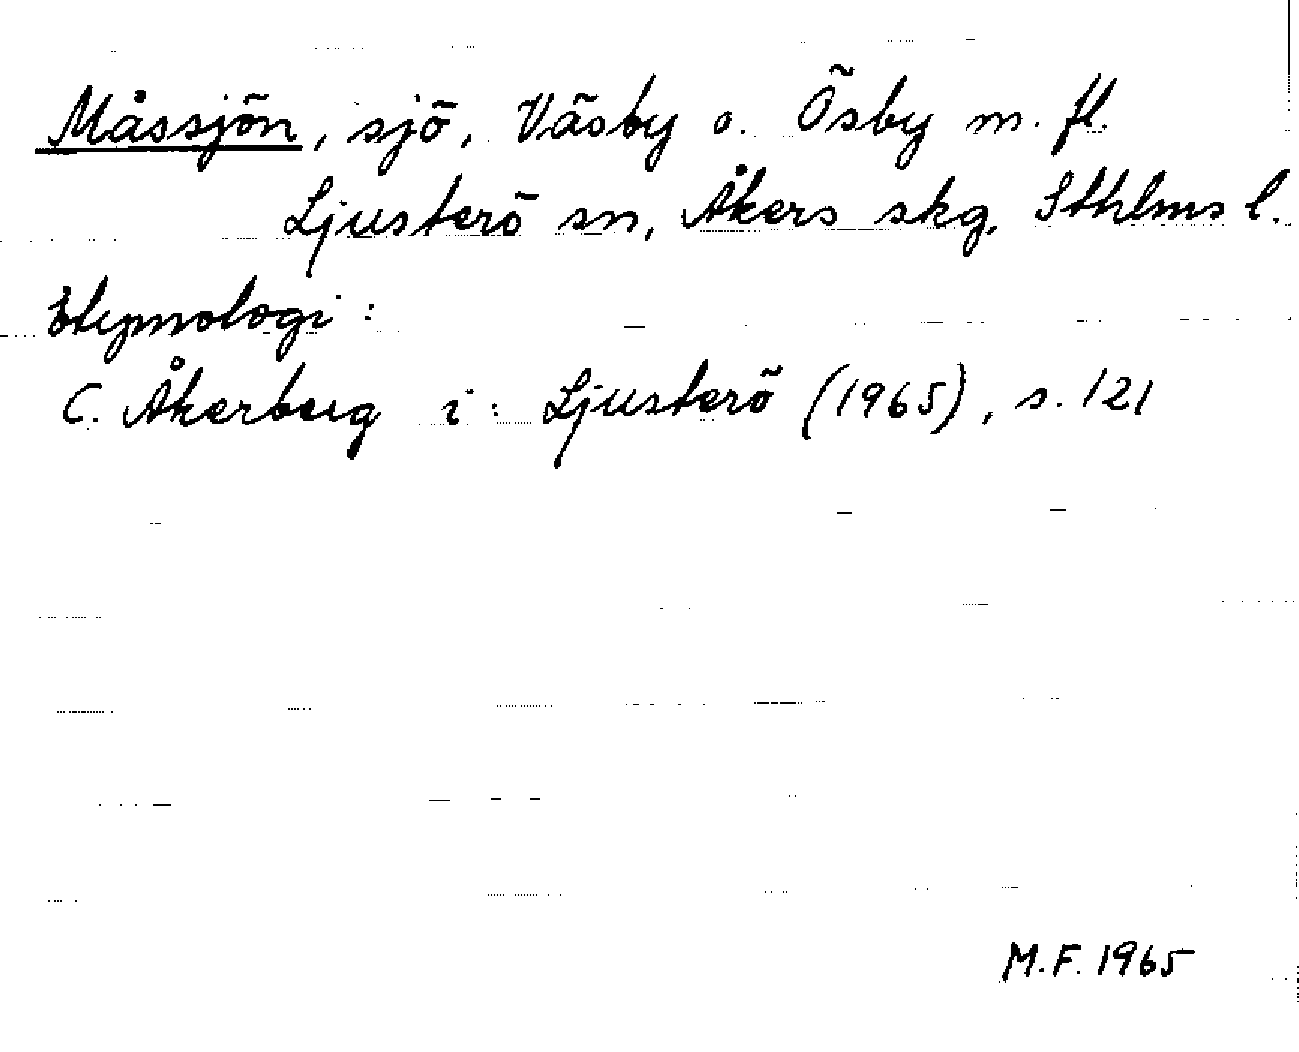 Måssjön, sjö, Väsby o. Ösby m. fl.
Ljusterö sn, Åkers skg, Sthlms l.
Etymologi:
C. Åkerberg i: Ljusterö (1965), s. 121
M.F. 1965